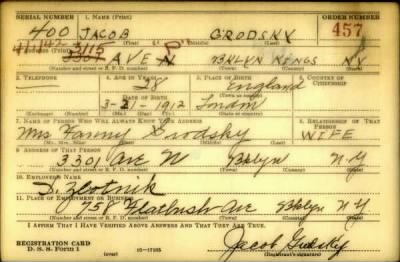 SERIAL NUMBER 1. NAME (Print) ORDER NUMBER
400 JACOB GRODSKY 457
(First) (Middle) (Last)
41,142 3115 "P"
3301 AVE N BKLYN KINGS NY
(Number and street or R. F. D. number) (Town) (County) (State)
3. TELEPHONE 4. AGE IN YEARS 5. PLACE OF BIRTH 6. COUNTRY OF CITIZENSHIP
— 28 England
DATE OF BIRTH
3-21-1912
(Exchange) (Number) (Mo.) (Day) (Yr.) (Town or county) (State or country)
7. NAME OF PERSON WHO WILL ALWAYS KNOW YOUR ADDRESS 8. RELATIONSHIP OF THAT PERSON
Mrs Fanny Grodsky WIFE
(Mr., Mrs., Miss) (First) (Middle) (Last)
9. ADDRESS OF THAT PERSON
3301 Ave N Bklyn N-Y
(Number and street or R. F. D. number) (Town) (County) (State)
10. EMPLOYER'S NAME
D. Zlotnik
11. PLACE OF EMPLOYMENT OR BUSINESS
758 Flatbush Ave Bklyn N Y
(Number and street or R. F. D. number) (Town) (County) (State)
I AFFIRM THAT I HAVE VERIFIED ABOVE ANSWERS AND THAT THEY ARE TRUE.
REGISTRATION CARD
D. S. S. Form 1 (over) 16—17105 Jacob Grodsky